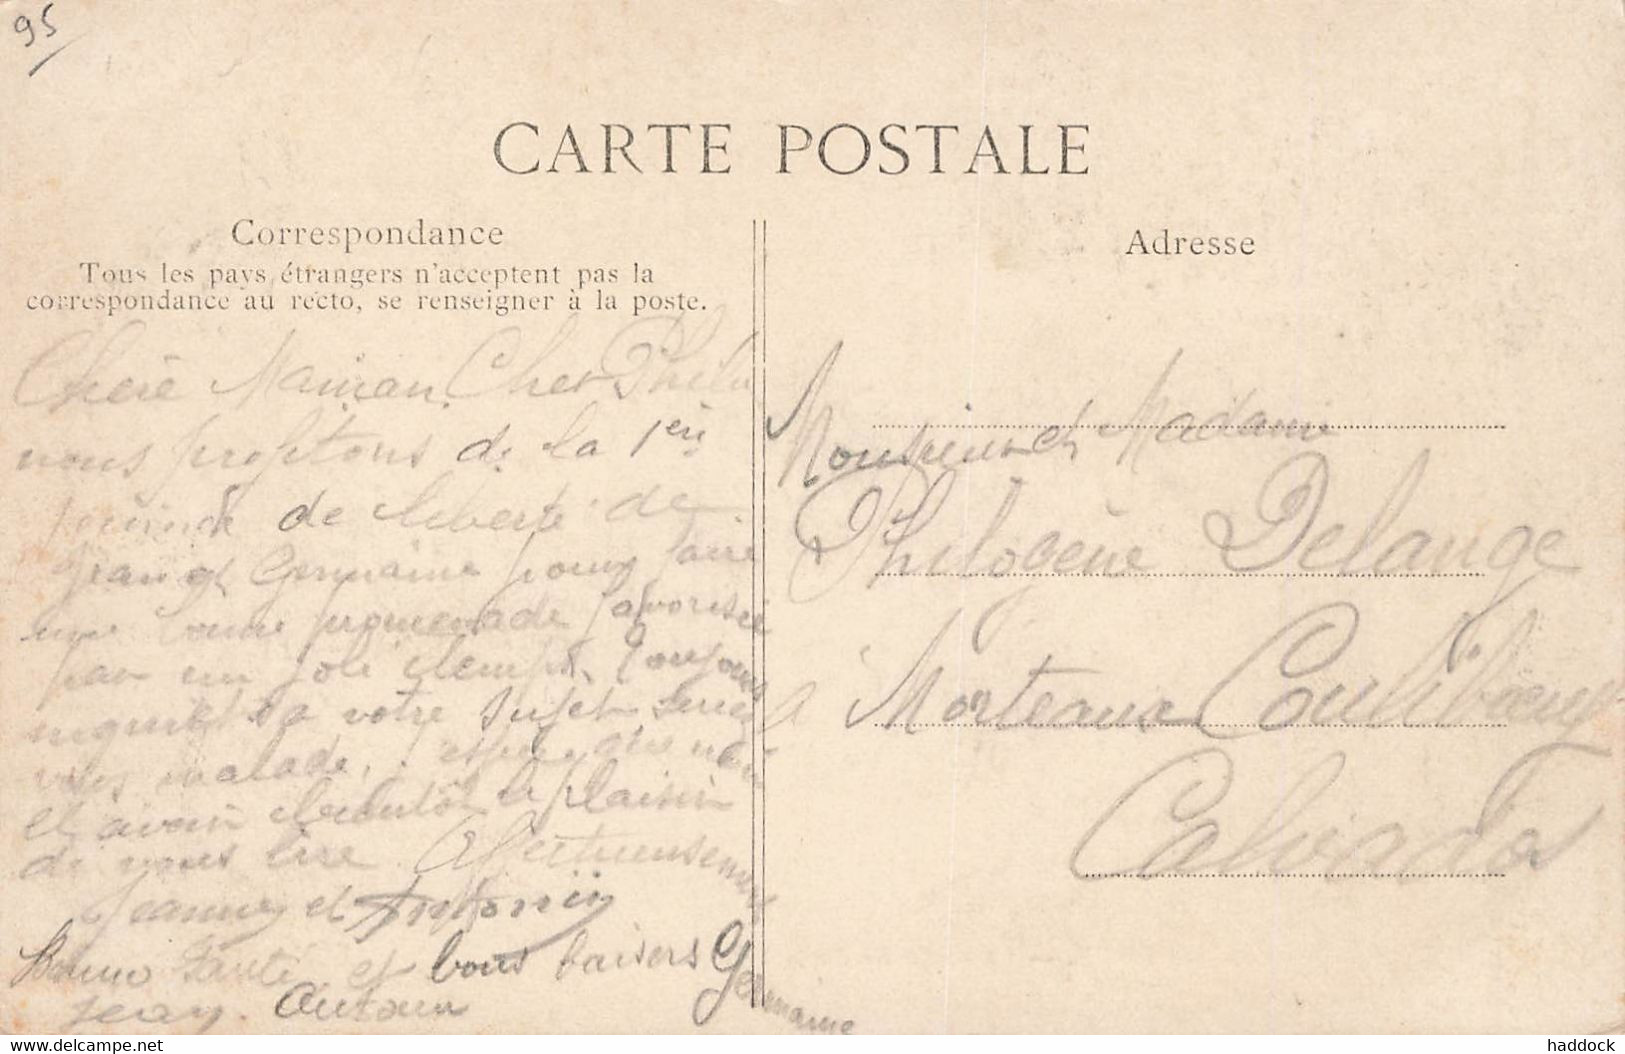 95
CARTE POSTALE
Correspondance
Tous les pays étrangers n'acceptent pas la
correspondance au recto, se renseigner à la poste.
Chère Maman, Cher Philo
nous profitons de la 1ère
journée de liberté de
Jean et Germaine pour faire
une bonne promenade favorisée
par un joli temps. Toujours
inquiets à votre sujet seriez
vous malade, j'espère que non
et avoir bientôt le plaisir
de vous lire. Affectueusement
Jeanne et Antonin
Bonne Santé et bons baisers Germaine
Jean.
Adresse
Monsieur et Madame
Philogène Delange
à Morteaux Coulibœuf
Calvados
www.delcampe.net
haddock